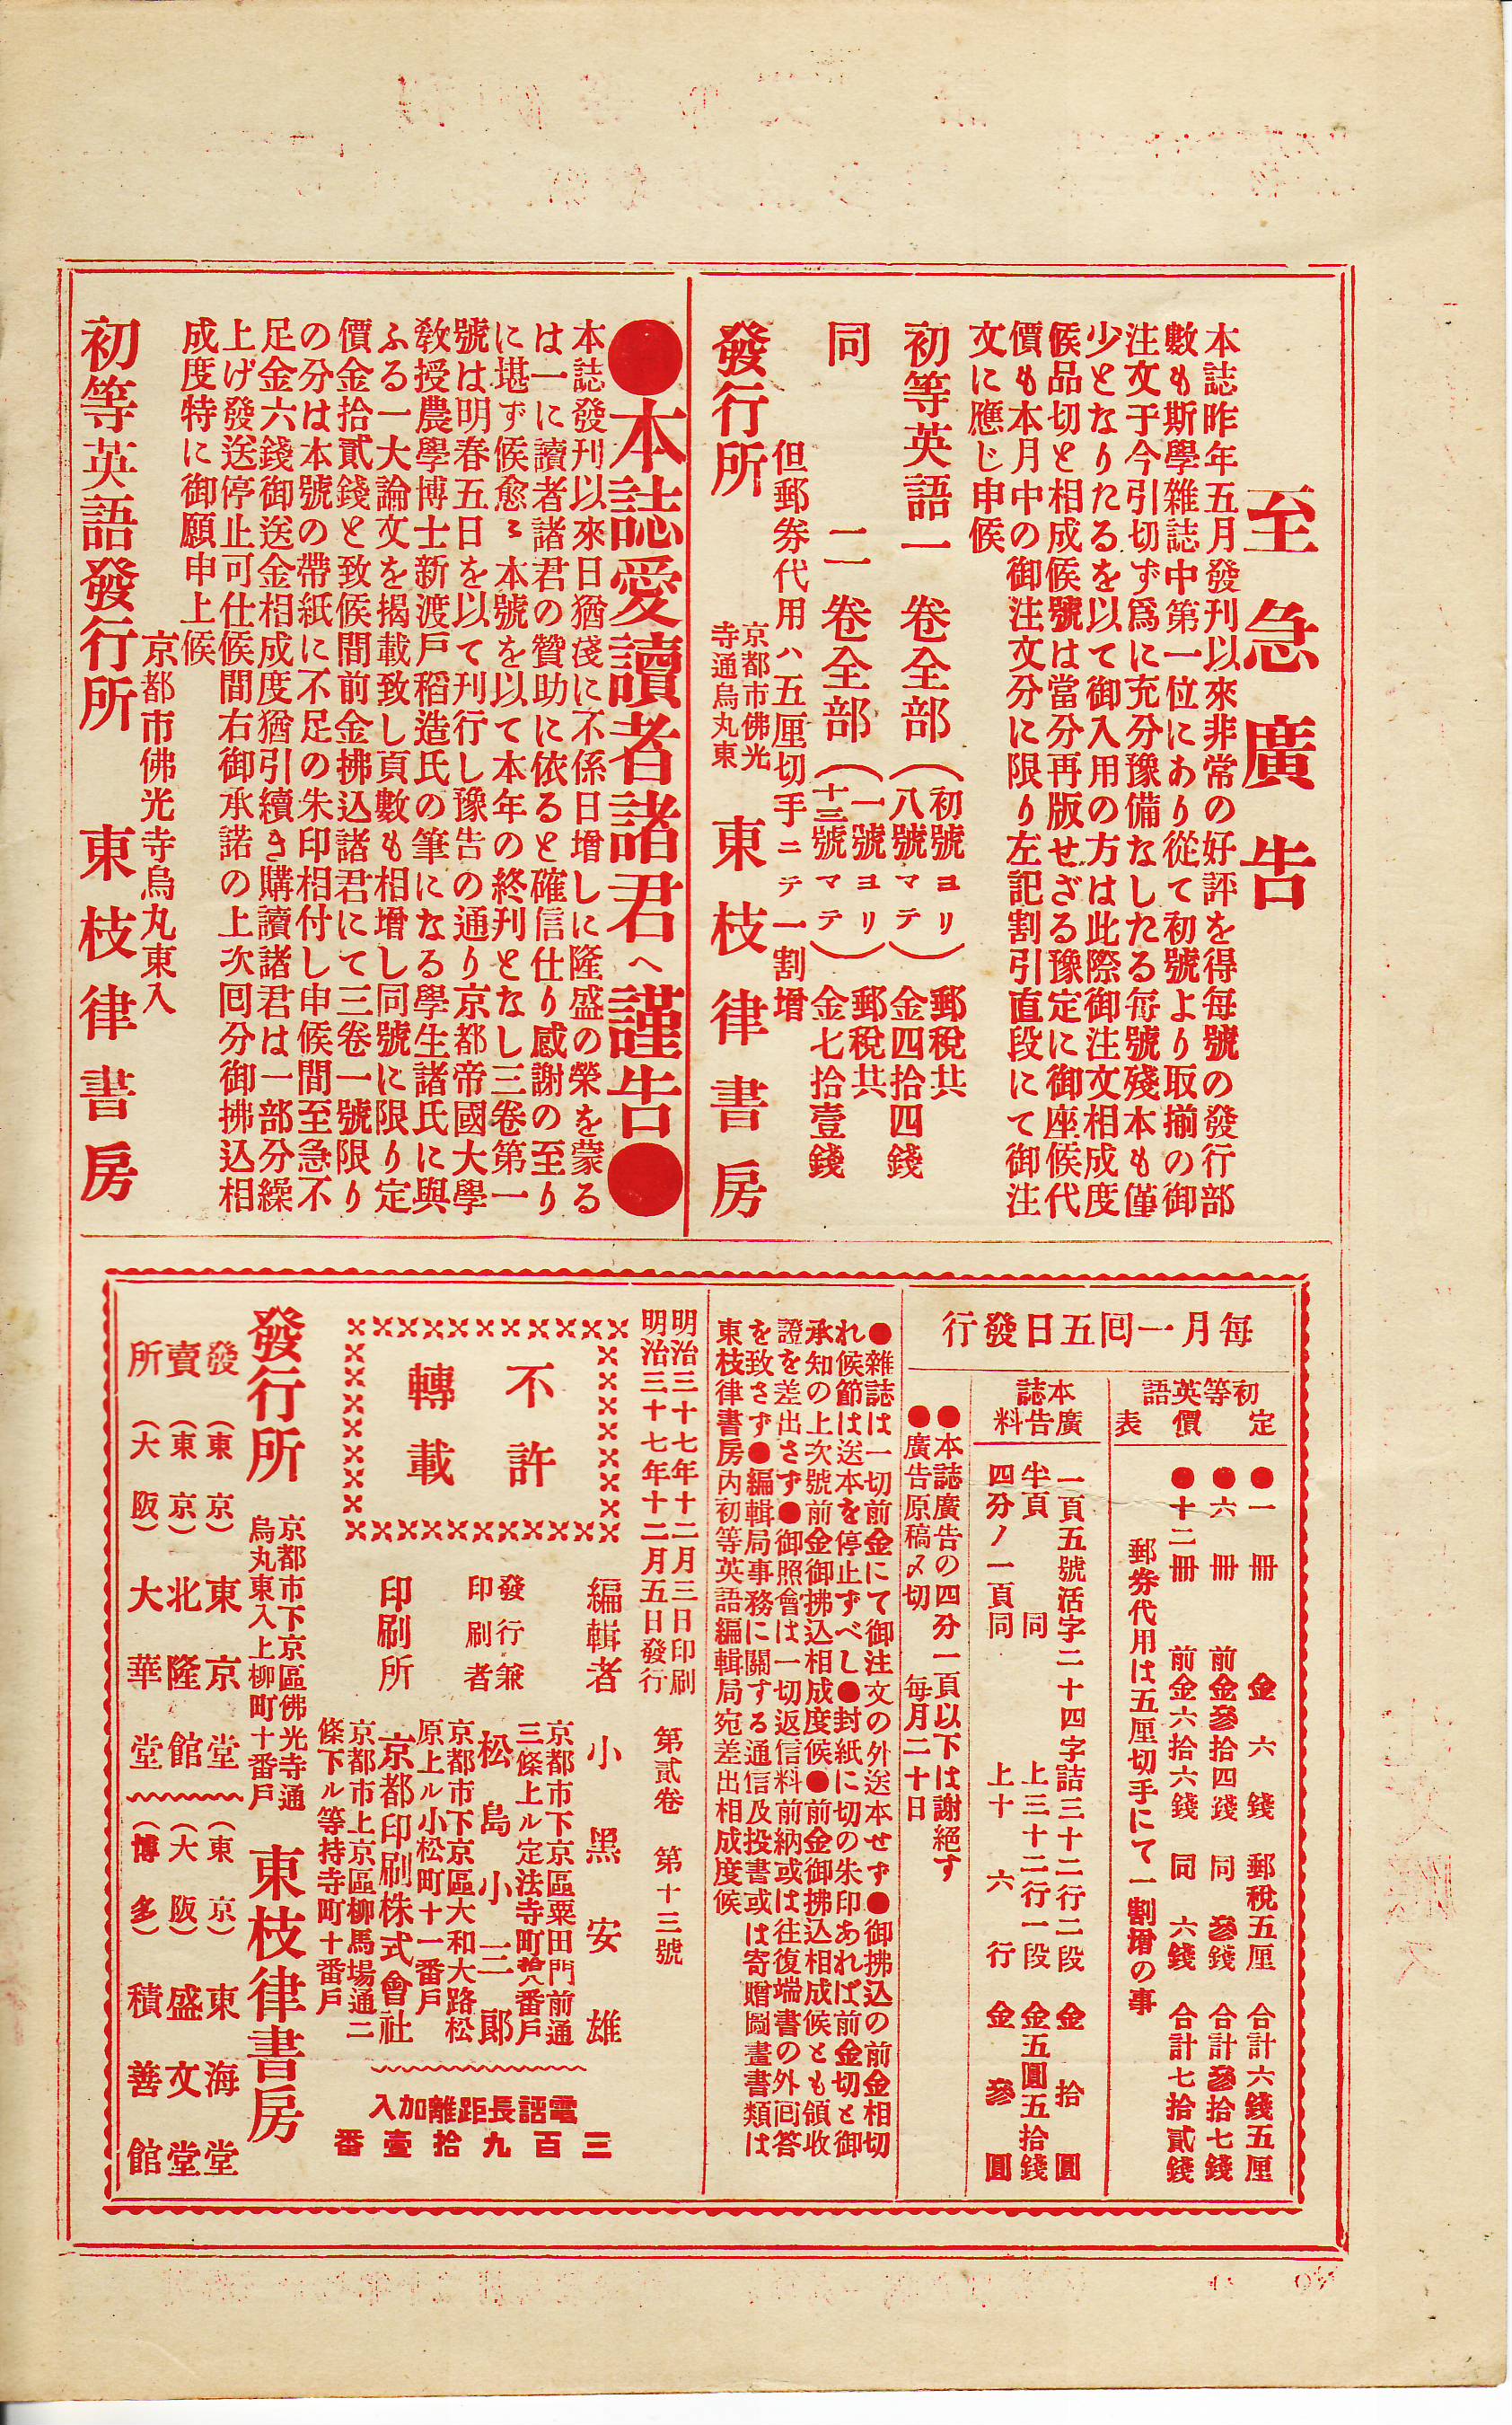 至急廣告
本誌昨年五月發刊以來非常の好評を得毎號の發行部
數も斯學雜誌中第一位にあり從て初號より取揃の御
注文于今引切ず爲に充分豫備なしたる毎號殘本も僅
少となりたるを以て御入用の方は此際御注文相成度
候品切と相成候號は當分再版せざる豫定に御座候代
價も本月中の御注文分に限り左記割引直段にて御注
文に應じ申候
初等英語一卷全部(初號ヨリ八號マテ)郵稅共金四拾四錢
同二卷全部(一號ヨリ十三號マテ)郵稅共金七拾壹錢
但郵券代用ハ五厘切手ニテ一割增
發行所 京都市佛光寺通烏丸東 東枝律書房
●本誌愛讀者諸君へ謹告●
本誌發刊以來日猶淺に不係日增しに隆盛の榮を蒙る
は一に讀者諸君の贊助に依ると確信仕り感謝の至り
に堪ず候愈〻本號を以て本年の終刊となし三卷第一
號は明春五日を以て刊行し豫告の通り京都帝國大學
敎授農學博士新渡戶稻造氏の筆になる學生諸氏に與
ふる一大論文を揭載致し頁數も相增し同號に限り定
價金拾貳錢と致候間前金拂込諸君にて三卷一號限り
の分は本號の帶紙に不足の朱印相付し申候間至急不
足金六錢御送金相成度猶引續き購讀諸君は一部分繰
上げ發送停止可仕候間右御承諾の上次回分御拂込相
成度特に御願申上候
京都市佛光寺烏丸東入
初等英語發行所 東枝律書房
每月一回五日發行
初等英語定價表
●一冊 金六錢 郵稅五厘 合計六錢五厘
●六冊 前金參拾四錢 同參錢 合計參拾七錢
●十二冊 前金六拾六錢 同六錢 合計七拾貳錢
郵券代用は五厘切手にて一割增の事
本誌廣告料
一頁五號活字二十四字詰三十二行二段 金拾圓
半頁 同 上三十二行一段 金五圓五拾錢
四分ノ一頁同 上十六行 金參圓
●本誌廣告の四分一頁以下は謝絕す
●廣告原稿〆切 每月二十日
●雜誌は一切前金にて御注文の外送本せず●御拂込の前金相切
れ候節は送本を停止ずべし●封紙に切の朱印あれば前金切と御
承知の上次號前金御拂込相成度候●前金御拂込相成候とも領收
證を差出さず●御照會は一切返信料前納或は往復端書の外回答
を致さず●編輯局事務に關する通信及投書或は寄贈圖畫書類は
東枝律書房內初等英語編輯局宛差出相成度候
明治三十七年十二月三日印刷
明治三十七年十二月五日發行 第貳卷 第十三號
不許
轉載
編輯者 小黑安雄
京都市下京區粟田門前通
三條上ル定法寺町拾八番戶
發行兼印刷者 松島小三郞
京都市下京區大和大路松
原上ル小松町十一番戶
印刷所 京都印刷株式會社
京都市上京區柳馬場通二
條下ル等持寺町十番戶
電話長距離加入
三百九拾壹番
發行所 京都市下京區佛光寺通
烏丸東入上柳町十番戶 東枝律書房
發賣所
(東京)東京堂 (東京)東海堂
(東京)北隆館 (大阪)盛文堂
(大阪)大華堂 (博多)積善館